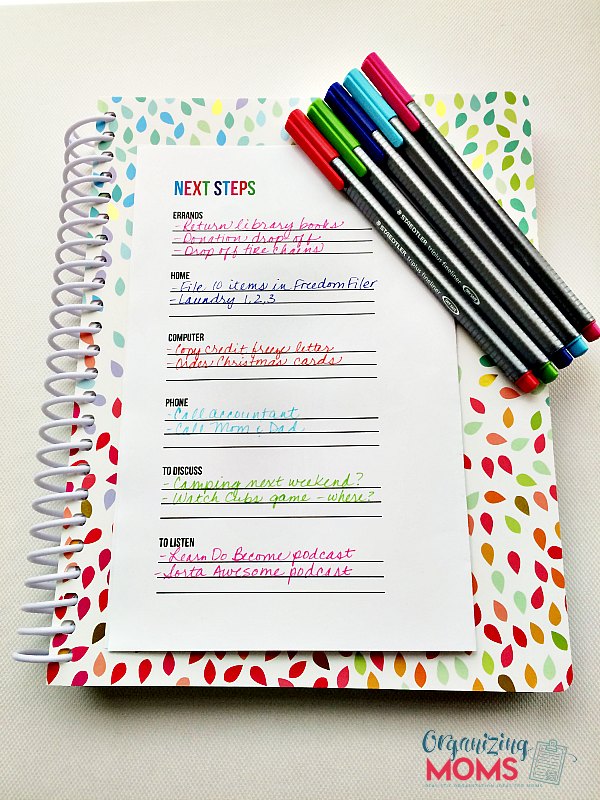 NEXT STEPS
ERRANDS
- Return library books
- Donation drop off
- Drop off tire chains
HOME
- File 10 items in FreedomFiler
- Laundry 1,2,3
COMPUTER
- Copy credit freeze letter
- Order Christmas cards
PHONE
- Call accountant
- Call Mom & Dad
TO DISCUSS
- Camping next weekend?
- Watch Cubs game - where?
TO LISTEN
- Learn Do Become podcast
- Sorta Awesome podcast
STAEDTLER triplus fineliner
STAEDTLER triplus fineliner
Organizing
MOMS
REALISTIC ORGANIZATION IDEAS FOR MOMS